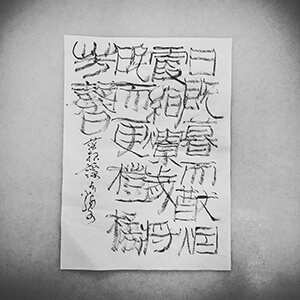 日既暮而猶烟
霞絢爛歲將
晚而更橙橘
芳馨
菜根譚